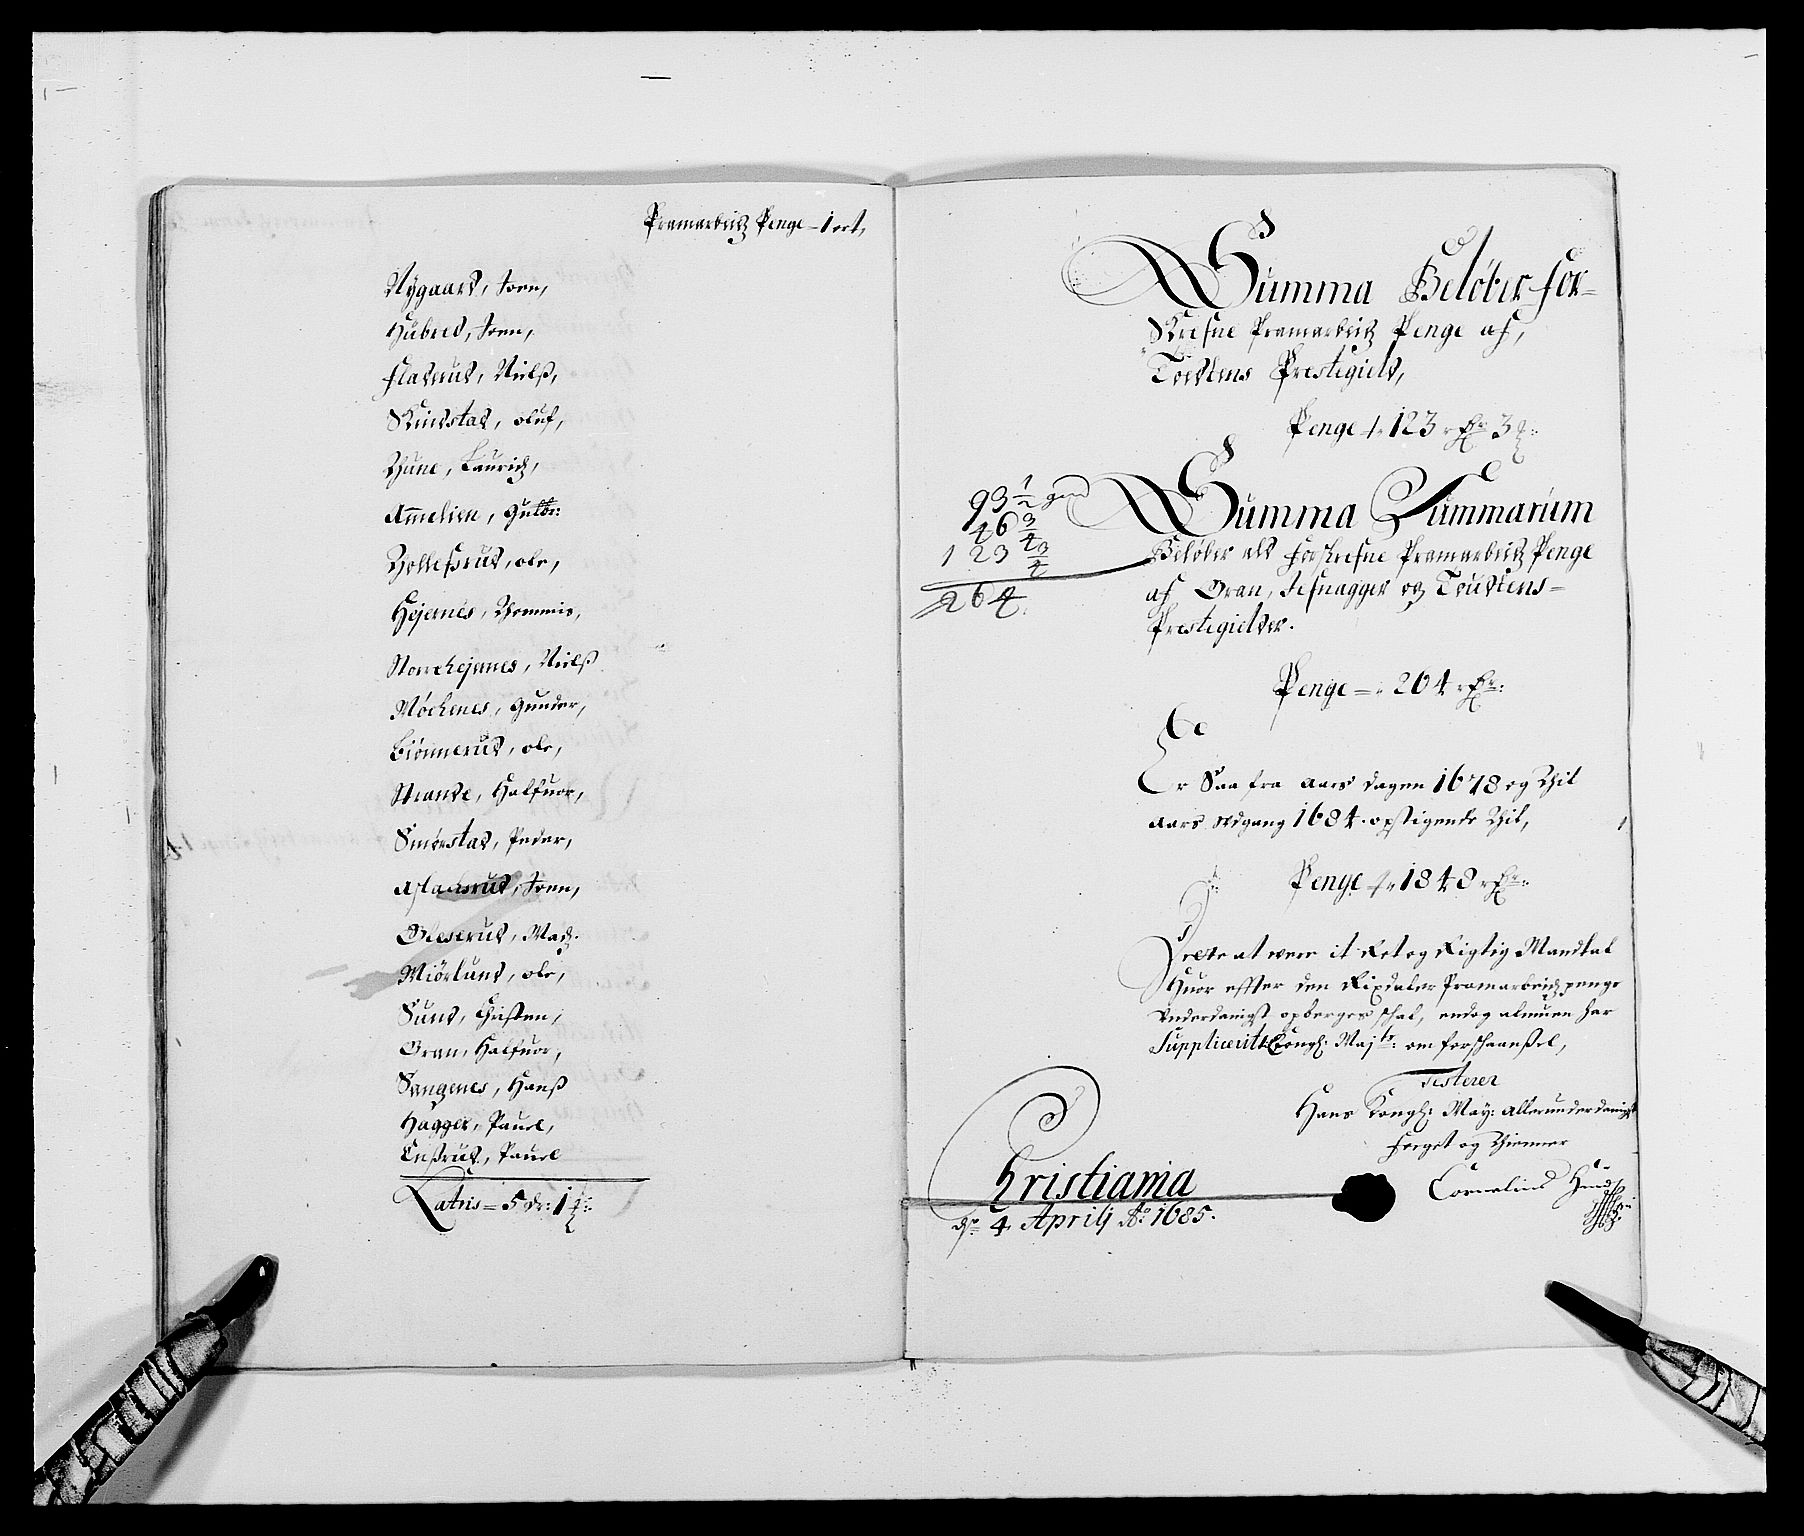 Pramarbeitz Penge – 1 ort,
Nÿgaard, Joen,
Húbred, Joen,
Fladrud, Nielß,
Skindstad, oluf,
Thune, Laurich,
Ammelien, Guldbr:
Tholleßrud, ole,
Hejernes, Thommis,
Storchejnnes, Nielß
Móchenes, Gunder,
Biónnerud, ole,
Strande, Halfuor,
Smørstad, Peder,
Aslachsrud, Joen,
Gleserud, Madz.
Miórlund, ole,
Sund, Christen,
Gran, Halfuor,
Sangenes, Hanß
Hagger, Pauel,
Enßrud, Pauel
Latris = 5 dr: 1 ȝ:
Summa Belóber for-
Skrefne Pramarbeitz Penge af,
Tordens Prestegield,
Penge – 123 rdr 3 ȝ:
93 1/2
46 3/4
123 3/4
264.
Summa Summarum
Belóber all forskrefne Pramarbeitz Penge
af Gran, Jefnager og Tordens-
Prestegielder.
Penge – 264 rdr:
Er Saa fra aars dagen 1678 og Thil
aars udgang 1684. opstigende Thil,
Penge – 1848 rdr:
Dette at were it Ret og Rigtig Mandtal
Huor effter den Rixdaler Pramarbeidz penge
Underdanigst opberges schal, endog almuen har
Suppliceritt Kongl: Majts: om forschaanßel,
Testerer
Hans Kongl: May: allerunderdanigst
Foeget og Thienner
Cornelius
Christiania
dn 4. Aprilj Ao 1685.